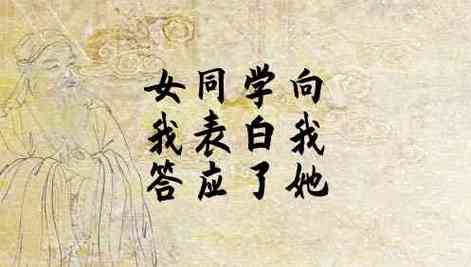 女同学向
我表白我
答应了她